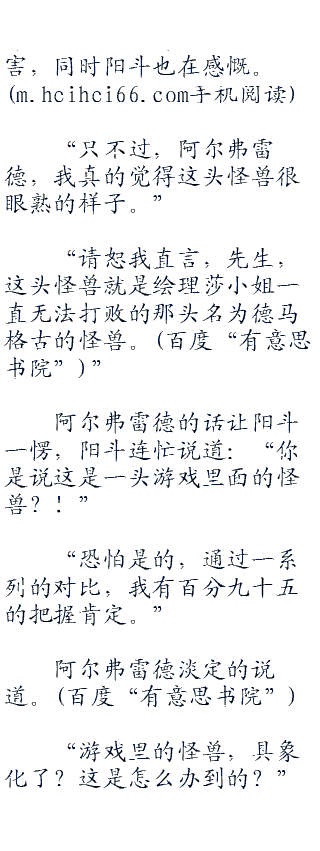 害，同时阳斗也在感慨。
(m.hcihci66.com手机阅读)
“只不过，阿尔弗雷
德，我真的觉得这头怪兽很
眼熟的样子。”
“请恕我直言，先生，
这头怪兽就是绘理莎小姐一
直无法打败的那头名为德马
格古的怪兽。(百度“有意思
书院”)”
阿尔弗雷德的话让阳斗
一愣，阳斗连忙说道：“你
是说这是一头游戏里面的怪
兽？！”
“恐怕是的，通过一系
列的对比，我有百分九十五
的把握肯定。”
阿尔弗雷德淡定的说
道。(百度“有意思书院”)
“游戏里的怪兽，具象
化了？这是怎么办到的？”